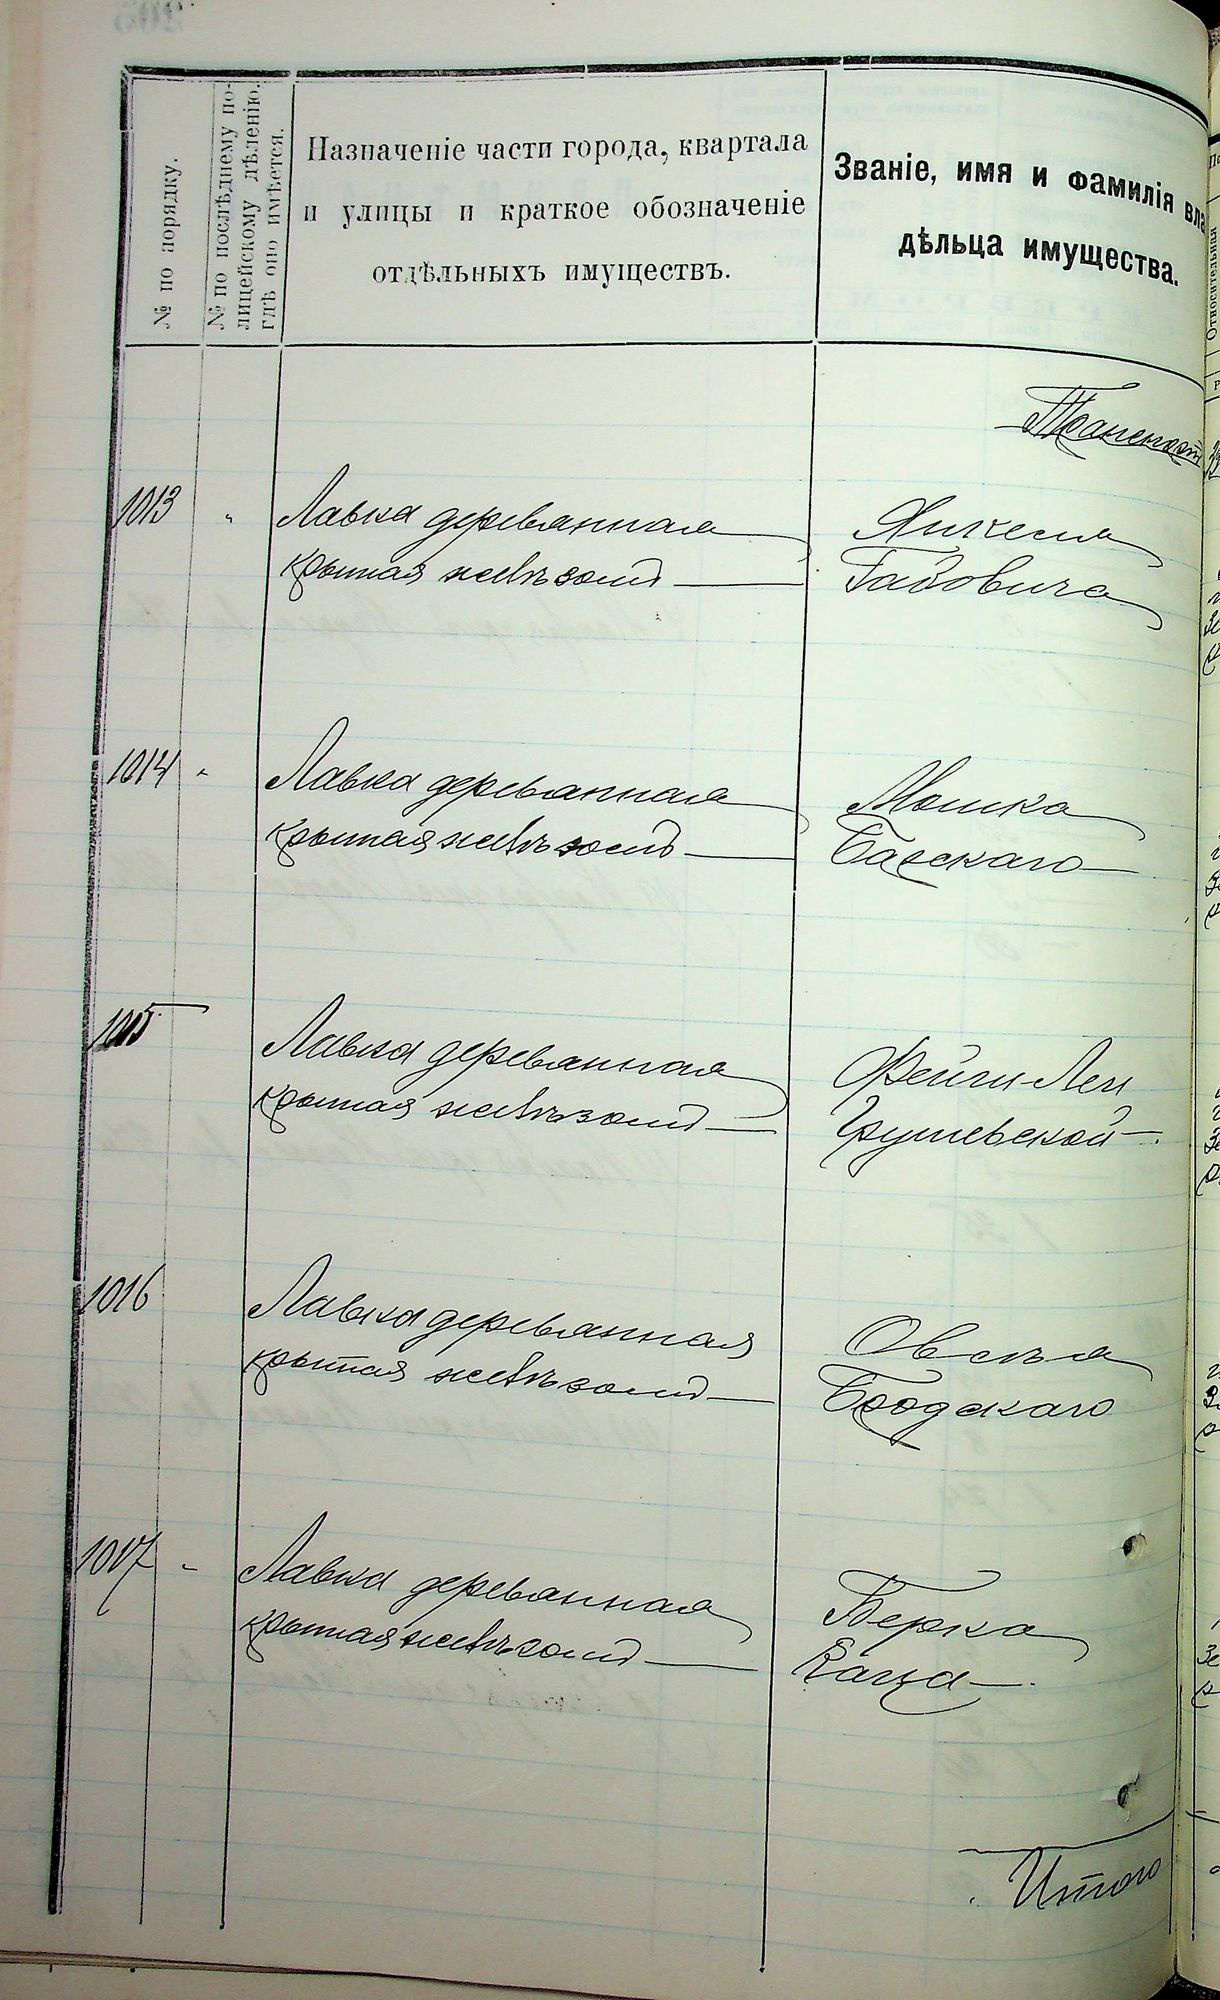 № по порядку.
№ по послѣднему по-
лицейскому дѣленію,
гдѣ оно имѣется.
Назначеніе части города, квартала
и улицы и краткое обозначеніе
отдѣльныхъ имуществъ.
Званіе, имя и фамилія вла
дѣльца имущества.
Транспортъ
1013 " Лавка деревянная Янкеля
крытая желѣзомъ — Габовича
1014 " Лавка деревянная Мошка
крытая желѣзомъ — Барскаго —
1015 Лавка деревянная Фейги-Леи
крытая желѣзомъ — Грушевской —.
1016 Лавка деревянная Овсѣя
крытая желѣзомъ — Бродскаго
1017 " Лавка деревянная Берка
крытая желѣзомъ — Каца —.
Итого
Относительная